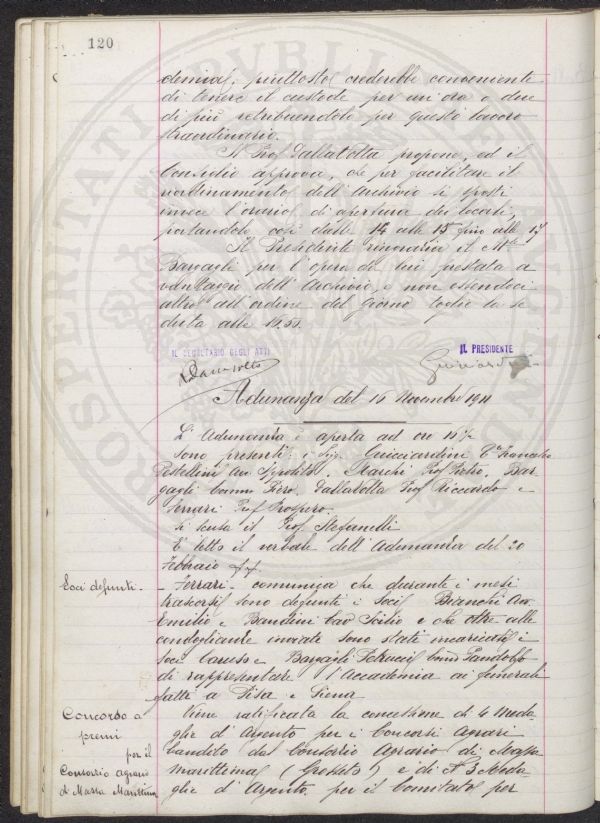 120
demia, piuttosto crederebbe conveniente
di tenere il custode per un'ora o due
di più retribuendolo per questo lavoro
straordinario.
Il Prof Dallavolta propone, ed il
Consiglio approva, che per facilitare il
riordinamento dell'Archivio si sposti
invece l'orario di apertura dei locali,
portandolo così dalle 14 alle 15 fino alle 17
Il Presidente ringrazia il M.se
Bargagli per l'opera da lui prestata a
vantaggio dell'Archivio, e non essendoci
altro all'ordine del giorno toglie la se
duta alle 15.55.
IL SEGRETARIO DEGLI ATTI
IL PRESIDENTE
Adunanza del 16 Novembre 1911
L'Adunanza è aperta ad ore 16 ½
Sono presenti: i Sigg. Guicciardini Cte Francesco
Pestellini Avv Ippolito, Marchi Prof Pietro, Bar
gagli Comm Piero. Dallavolta Prof Riccardo e
Ferrari Prof Prospero.
Si scusa il Prof. Stefanelli
È letto il verbale dell'Adunanza del 20
Febbraio
Soci defunti - Ferrari - comunica che durante i mesi
trascorsi sono defunti i Soci Bianchi Avv
Emilio e Bandini Cav Isidio e che oltre alle
condoglianze inviate sono stati incaricati i
soci Caruso e Bargagli Petrucci Comm Pandolfo
di rappresentare l'Accademia ai funerali
fatti a Pisa e Siena
Concorso a
premi
per il
Consorzio Agrario
di Massa Marittima
Viene ratificata la concessione di 4 Meda
glie d'Argento per i Concorsi Agrari
bandito dal Consorzio Agrario di Massa
marittima (Grosseto) e di N 3 Meda
glie d'Argento per il Comitato per